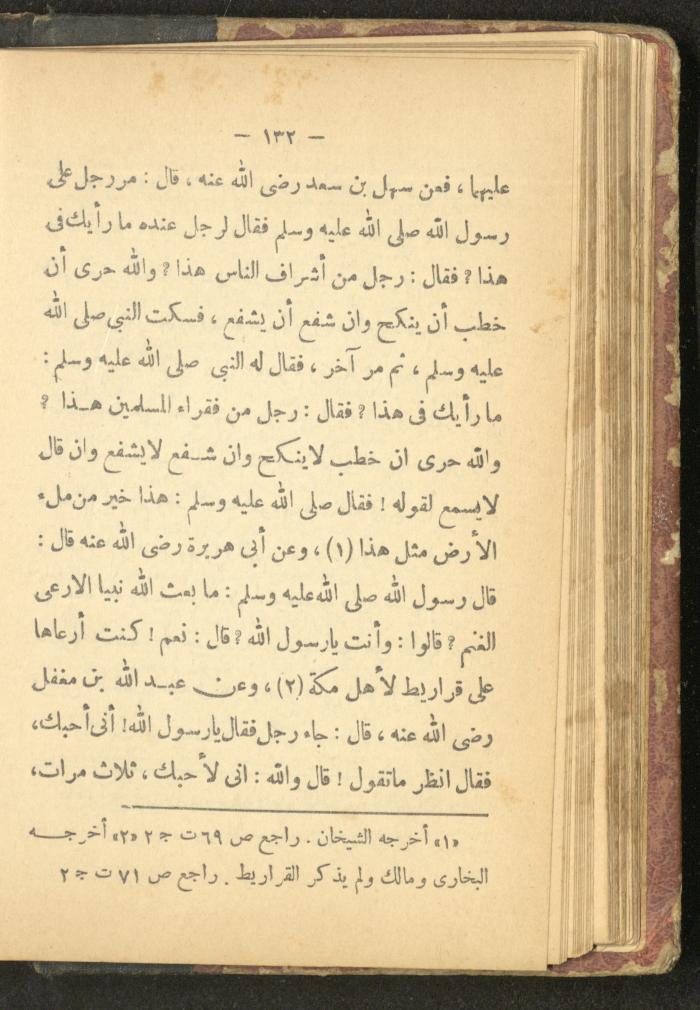 — ١٣٢ —
عليها ، فعن سهل بن سعد رضى الله عنه ، قال : مر رجل على
رسول الله صلى الله عليه وسلم فقال لرجل عنده ما رأيك فى
هذا ؟ فقال : رجل من أشراف الناس هذا ؟ والله حرى أن
خطب أن ينكح وان شفع أن يشفع ، فسكت النبى صلى الله
عليه وسلم ، ثم مر آخر ، فقال له النبى صلى الله عليه وسلم :
ما رأيك فى هذا ؟ فقال : رجل من فقراء المسلمين هـذا ؟
والله حرى ان خطب لاينكح وان شـفع لايشفع وان قال
لايسمع لقوله ! فقال صلى الله عليه وسلم : هذا خير من ملء
الأرض مثل هذا (١) ، وعن أبى هريرة رضى الله عنه قال :
قال رسول الله صلى الله عليه وسلم : ما بعث الله نبيا الارعى
الغنم ؟ قالوا : وأنت يارسول الله ؟ قال : نعم ! كنت أرعاها
على قراريط لأهل مكة (٢) ، وعن عبـد الله بن مغفل
رضى الله عنه ، قال : جاء رجل فقال يارسول الله! أنى أحبك،
فقال انظر ماتقول ! قال والله : انى لأحبك ، ثلاث مرات،
«١» أخرجه الشيخان . راجع ص ٦٩ ت ج ٢ «٢» أخرجـه
البخارى ومالك ولم يذكر القراريط . راجع ص ٧١ ت ج ٢